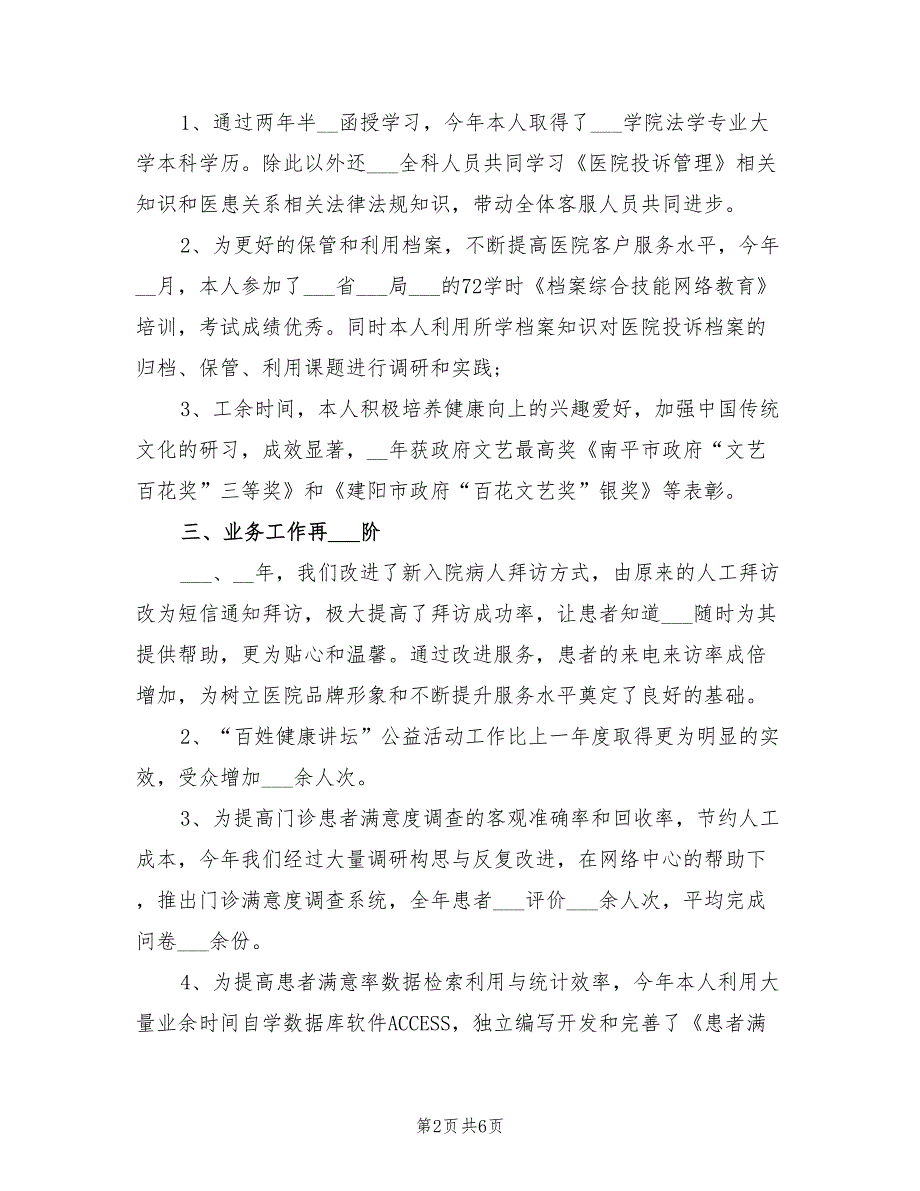 1、通过两年半__函授学习，今年本人取得了___学院法学专业大
学本科学历。除此以外还___全科人员共同学习《医院投诉管理》相关
知识和医患关系相关法律法规知识，带动全体客服人员共同进步。
2、为更好的保管和利用档案，不断提高医院客户服务水平，今年
__月，本人参加了___省___局___的72学时《档案综合技能网络教育》
培训，考试成绩优秀。同时本人利用所学档案知识对医院投诉档案的
归档、保管、利用课题进行调研和实践;
3、工余时间，本人积极培养健康向上的兴趣爱好，加强中国传统
文化的研习，成效显著，__年获政府文艺最高奖《南平市政府“文艺
百花奖”三等奖》和《建阳市政府“百花文艺奖”银奖》等表彰。
三、业务工作再___阶
___、__年，我们改进了新入院病人拜访方式，由原来的人工拜访
改为短信通知拜访，极大提高了拜访成功率，让患者知道___随时为其
提供帮助，更为贴心和温馨。通过改进服务，患者的来电来访率成倍
增加，为树立医院品牌形象和不断提升服务水平奠定了良好的基础。
2、“百姓健康讲坛”公益活动工作比上一年度取得更为明显的实
效，受众增加___余人次。
3、为提高门诊患者满意度调查的客观准确率和回收率，节约人工
成本，今年我们经过大量调研构思与反复改进，在网络中心的帮助下
，推出门诊满意度调查系统，全年患者___评价___余人次，平均完成
问卷___余份。
4、为提高患者满意率数据检索利用与统计效率，今年本人利用大
量业余时间自学数据库软件ACCESS，独立编写开发和完善了《患者满
第2页 共6页